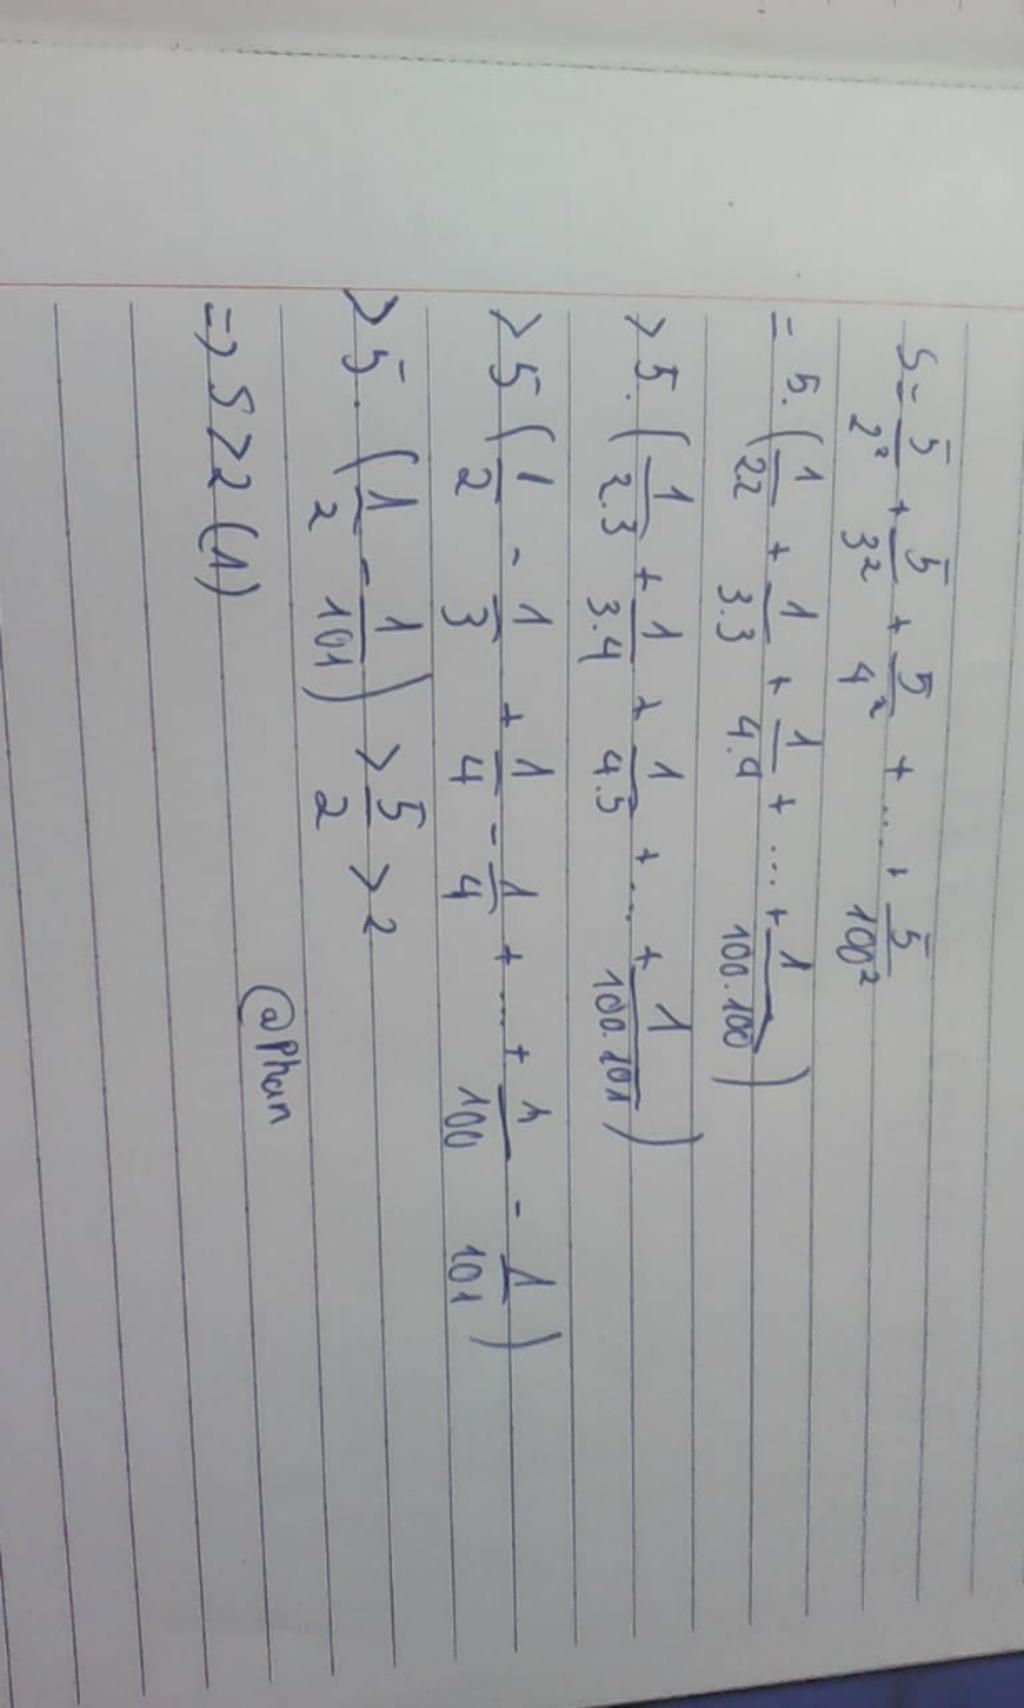 S = 5/2² + 5/3² + 5/4² + ... + 5/100²
= 5. (1/2.2 + 1/3.3 + 1/4.4 + ... + 1/100.100)
> 5. (1/2.3 + 1/3.4 + 1/4.5 + ... + 1/100.101)
> 5 (1/2 - 1/3 + 1/4 - 1/4 + ... + 1/100 - 1/101)
> 5. (1/2 - 1/101) > 5/2 > 2
=> S > 2 (1)
@Phan